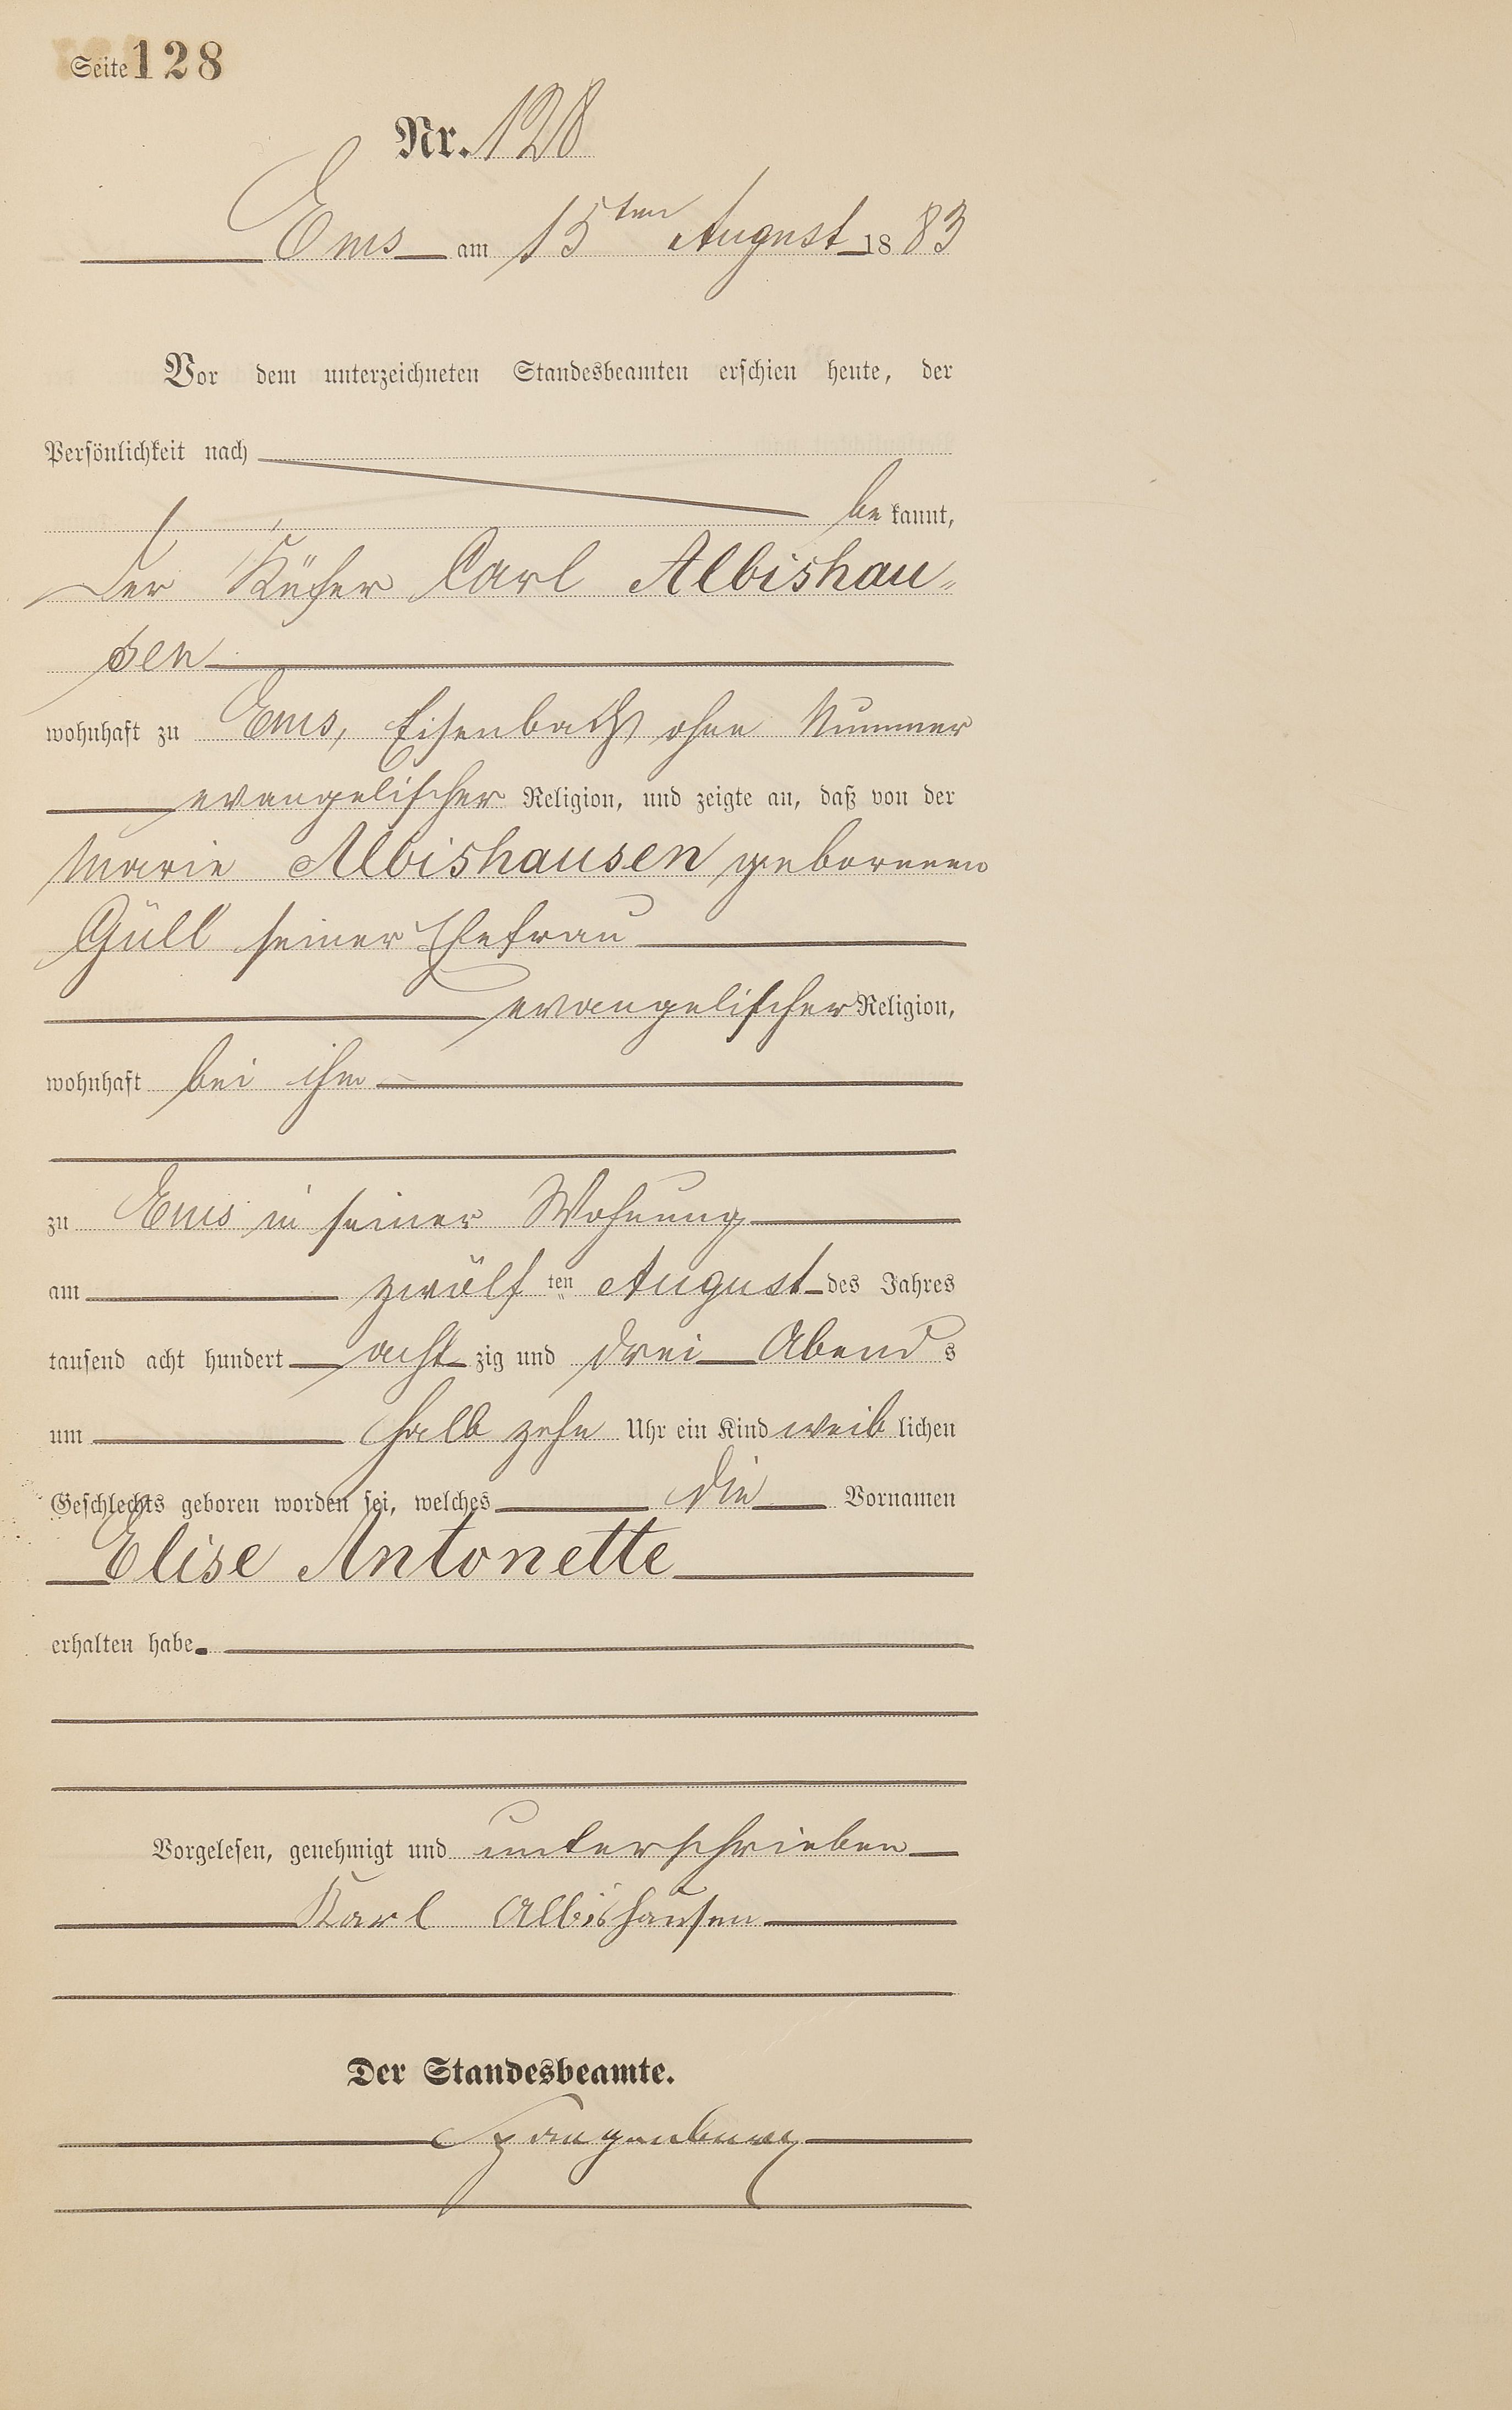 Seite 128
Nr. 128
Ems am 15ten August 1883
Vor dem unterzeichneten Standesbeamten erschien heute, der
Persönlichkeit nach
be kannt,
der Küfer Carl Albishau-
sen
wohnhaft zu Ems, Eisenbach ohne Nummer
evangelischer Religion, und zeigte an, daß von der
Marie Albishausen geborenen
Güll seiner Ehefrau
evangelischer Religion,
wohnhaft bei ihm
zu Ems in seiner Wohnung
am zwölf ten August des Jahres
tausend acht hundert acht zig und drei Abends
um halb zehn Uhr ein Kind weib lichen
Geschlechts geboren worden sei, welches die Vornamen
Elise Antonette
erhalten habe.
Vorgelesen, genehmigt und unterschrieben
Karl Albishausen
Der Standesbeamte.